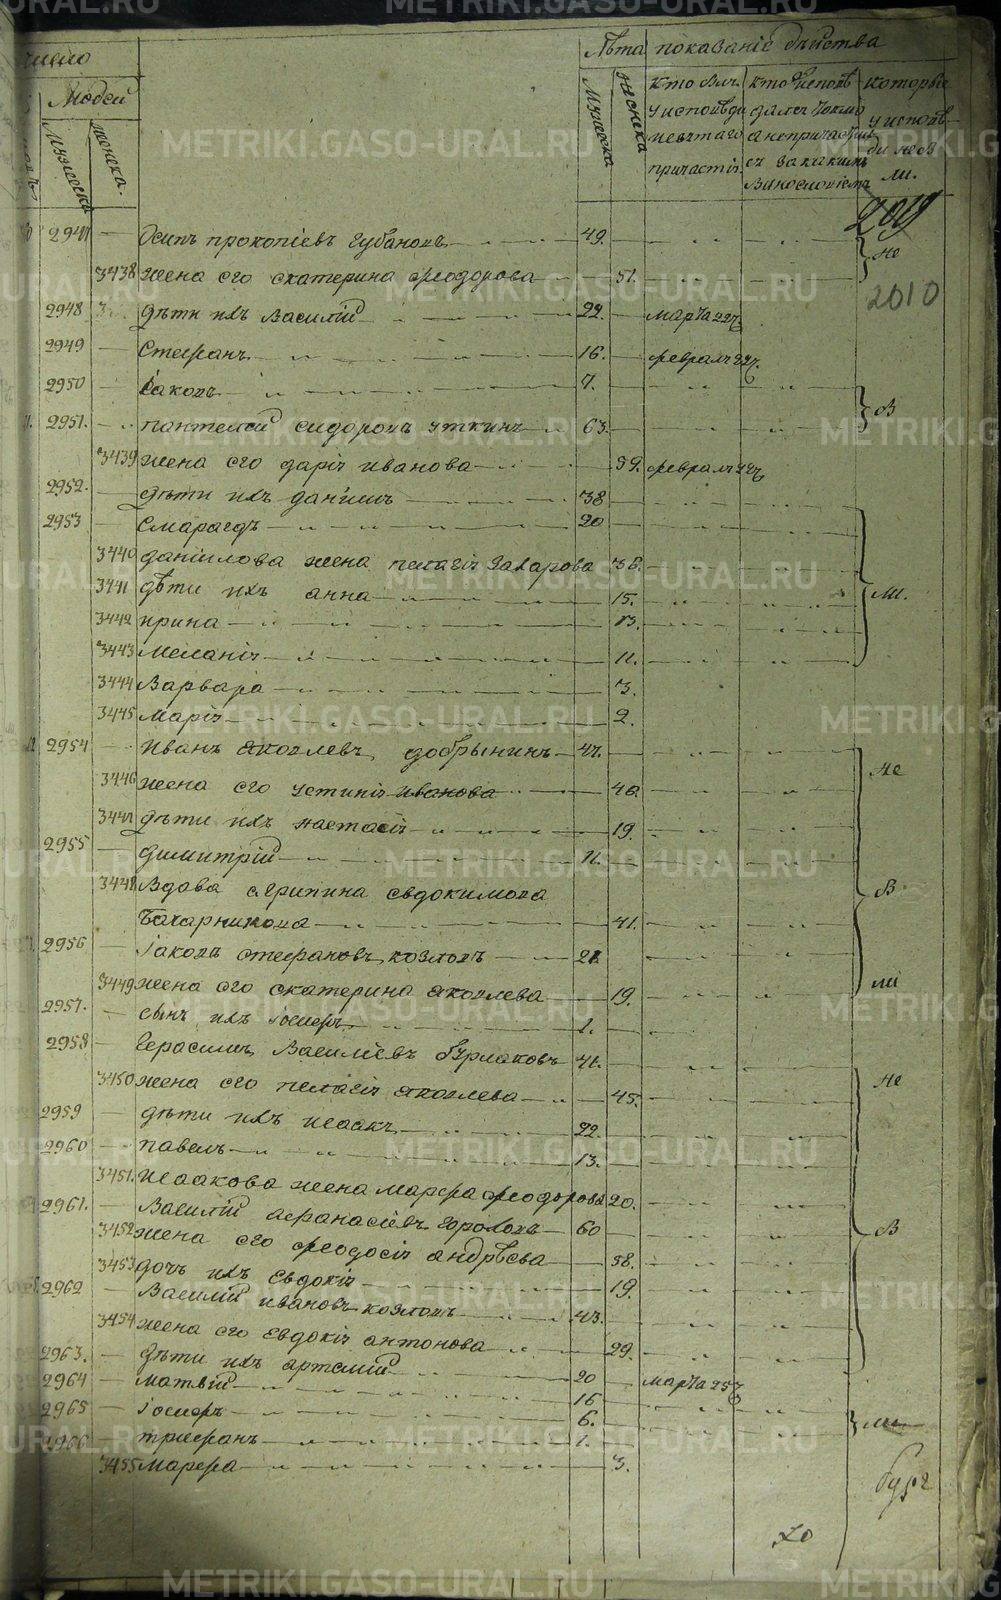 число
Людей
Лѣта показаніе бытства
мужеска
женска.
Мужеска
женска
кто былъ
у исповѣди
и святаго
причастія.
кто исповѣ
дался токмо
а непричастил
ся
которые
у исповѣ
ди не бы
ли.
2019
2010
2947 — Осипъ прокопіевъ Губановъ — 49. — не
3438 жена его екатерина феодорова — 51.
2948 дѣти ихъ Василій — 22. — марта 22
2949 — Стефанъ — 16. — февраля 22
2950 — Іаковъ — 7. — в
2951. — пантелей сидоровъ уткинъ — 63.
3439 жена его дарія иванова — 59. февраля 22
2952. — дѣти ихъ даніилъ — 38
2953 — Смарагдъ — 20
3440 даніилова жена пелагія Захарова 38.
3441 дѣти ихъ анна — 15. — ли.
3442 ирина — 13.
3443 Меланія — 11.
3444 Варвара — 3.
3445 Марія — 2.
2954 — иванъ яковлевъ добрынинъ — 47. — не
3446 жена его устинія иванова — 40
3447 дѣти ихъ настасія — 19.
2955 — димитрій — 11.
3448 Вдова агрипина евдокимова — в
Бахарникова — 41.
2956 — Іаковъ стефановъ козловъ — 21
3449 жена его екатерина яковлева — 19. — ли
2957. — сынъ ихъ Іосифъ — 1.
2958 — Герасимъ Василіевъ бурлаковъ 41.
3450 жена его пелагія яковлева — 45. — не
2959 — дѣти ихъ исаакъ — 22.
2960 — павелъ — 13.
3451. исаакова жена марфа феодорова 20.
2961. — Василій афанасіевъ — 60 — в
3452 жена его феодосія андрѣева — 58.
3453 дочь ихъ Евдокія — 19.
2962 — Василій ивановъ козловъ — 43.
3454 жена его Евдокія антонова — 29.
2963. — дѣти ихъ артемій — 20 — марта 25
2964 — матвій — 16
2965 — Іосифъ — 6. — ли
2966 — трифанъ — 1.
3455 марфа — 3.
METRIKI.GASO-URAL.RU